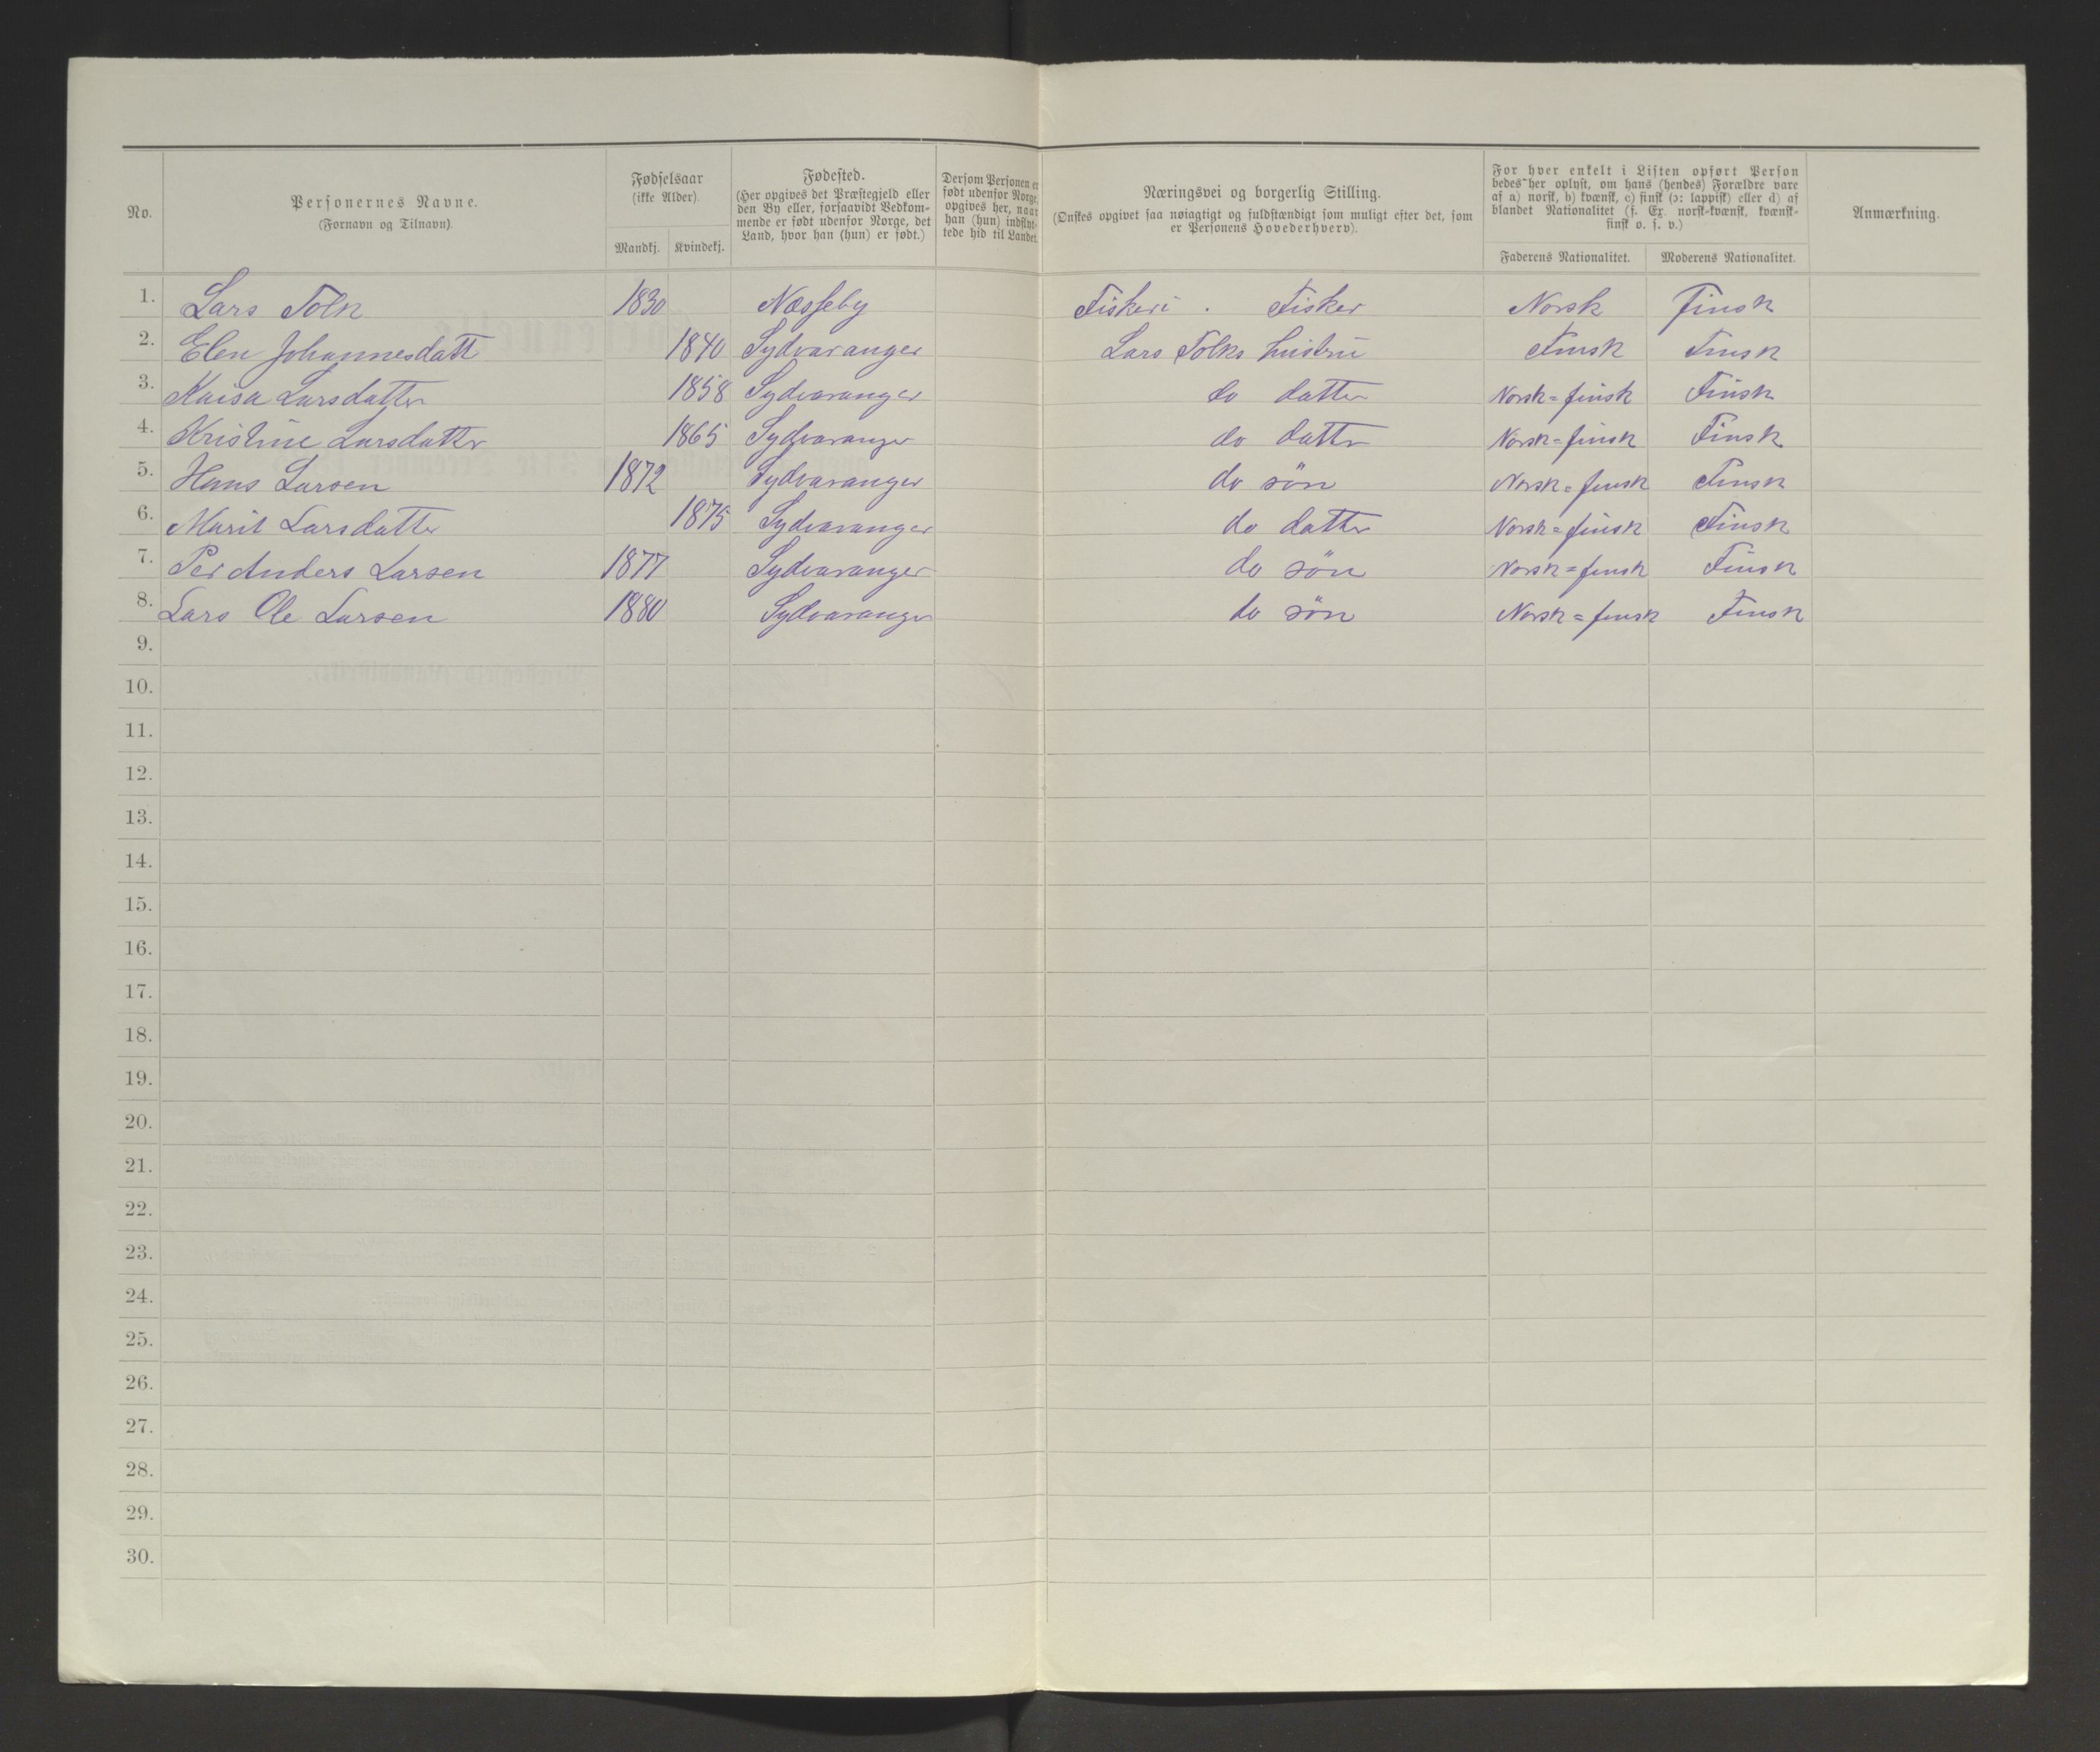 No.
Personernes Navne.
(Fornavn og Tilnavn).
Fødselsaar
(ikke Alder).
Mandkj. Kvindekj.
Fødested.
(Her opgives det Præstegjeld eller
den By eller, forsaavidt Vedkom-
mende er født udenfor Norge, det
Land, hvor han (hun) er født.)
Dersom Personen er
født udenfor Norge,
opgives her, naar
han (hun) indflyt-
tede hid til Landet.
Næringsvei og borgerlig Stilling.
(Ønskes opgivet saa nøiagtigt og fuldstændigt som muligt efter det, som
er Personens Hovederhverv).
For hver enkelt i Listen opført Person
bedes her oplyst, om hans (hendes) Forældre vare
af a) norsk, b) kvænsk, c) finsk (ɔ: lappisk) eller d) af
blandet Nationalitet (f. Ex. norsk-kvænsk, kvænsk-
finsk o. s. v.)
Faderens Nationalitet. Moderens Nationalitet.
Anmærkning.
1. Lars Tolk 1830 Næsseby Fiskeri . Fisker Norsk Finsk
2. Elen Johannesdatt 1840 Sydvaranger Lars Tolks hustru Finsk Finsk
3. Kaisa Larsdatter 1858 Sydvaranger do datter Norsk=finsk Finsk
4. Kristine Larsdatter 1865 Sydvaranger do datter Norsk=finsk Finsk
5. Hans Larsen 1872 Sydvaranger do søn Norsk=finsk Finsk
6. Marit Larsdatter 1875 Sydvaranger do datter Norsk=finsk Finsk
7. Per Anders Larsen 1877 Sydvaranger do søn Norsk=finsk Finsk
8. Lars Ole Larsen 1880 Sydvaranger do søn Norsk=finsk Finsk
9.
10.
11.
12.
13.
14.
15.
16.
17.
18.
19.
20.
21.
22.
23.
24.
25.
26.
27.
28.
29.
30.